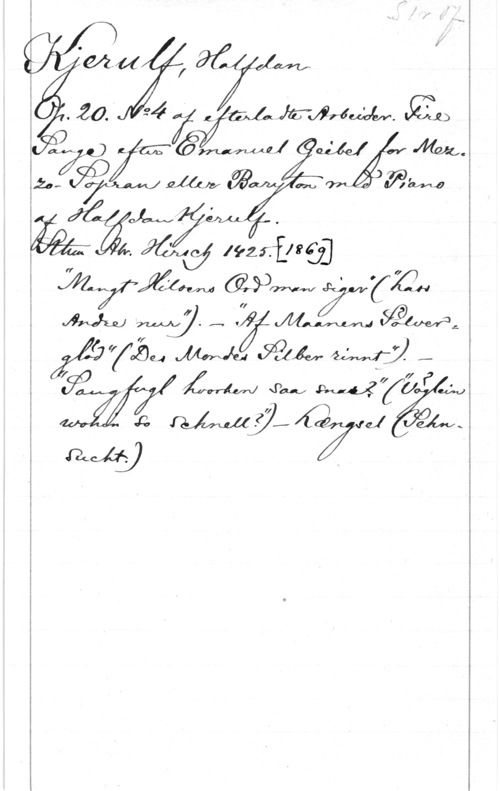 Kjerulf, Halfdan
Op. 20. No 4 af efterladte Arbeider. Fire
Sange efter Emanuel Geibel for Mez-
zo-Sopran eller Baryton med Piano
af Halfdan Kjerulf.
Sthm Abr. Hirsch 1425. [1869]
"Mangt Hilsens Ord man siger" ("Lass
Andre nur"). - "Af Maanens Sølver-
glød" ("Des Mondes Silber rinnt"). -
"Sangfugl hvorhen saa snar?" ("Vöglein
wohin so schnell?") - Længsel (Sehn-
sucht.)